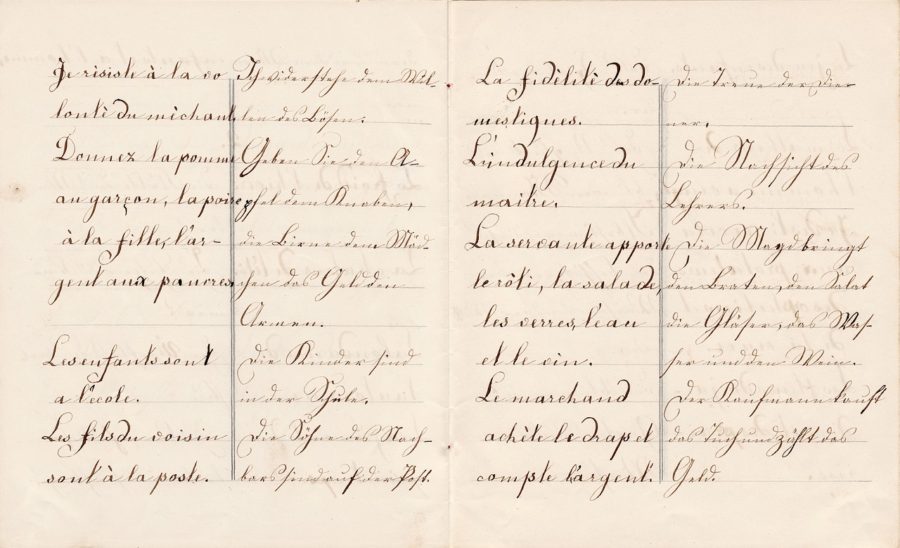 Je risiste à la vo
lontè du mèchant.
Donnez la pomme
au garçon, la poire
à la fille, l'ar-
gent aux pauvres.
Les enfants sont
a l'école.
Les fils du voisin
sont à la poste.
Ich widerstehe dem Wil-
len des Bösen.
Geben Sie den A-
pfel dem Knaben,
die Birne dem Mäd-
chen das Geld den
Armen.
Die Kinder sind
in der Schule.
Die Söhne des Nach-
bars sind auf der Post.
La fidèlitè des do-
mestiques.
L'indulgence du
maitre.
La servante apporte
le rôti, la salade,
les verres, l'eau
et le vin.
Le marchand
achète le drap et
compte l'argent.
Die Treue der Die-
ner.
Die Nachsicht des
Lehrers.
Die Magd bringt
den Braten, den Salat
die Gläser, das Was-
ser und den Wein.
Der Kaufmann kauft
das Tuch und zählt das
Geld.